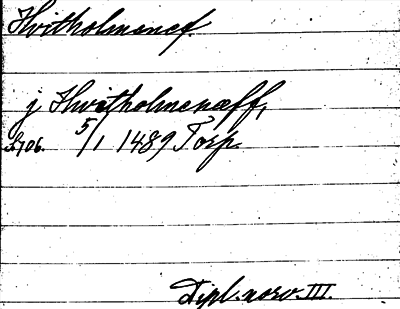 Hvitholmenef.
j Hvitholmenæff,
S. 706. 5/1 1489 Torp
Dipl. norv. III.